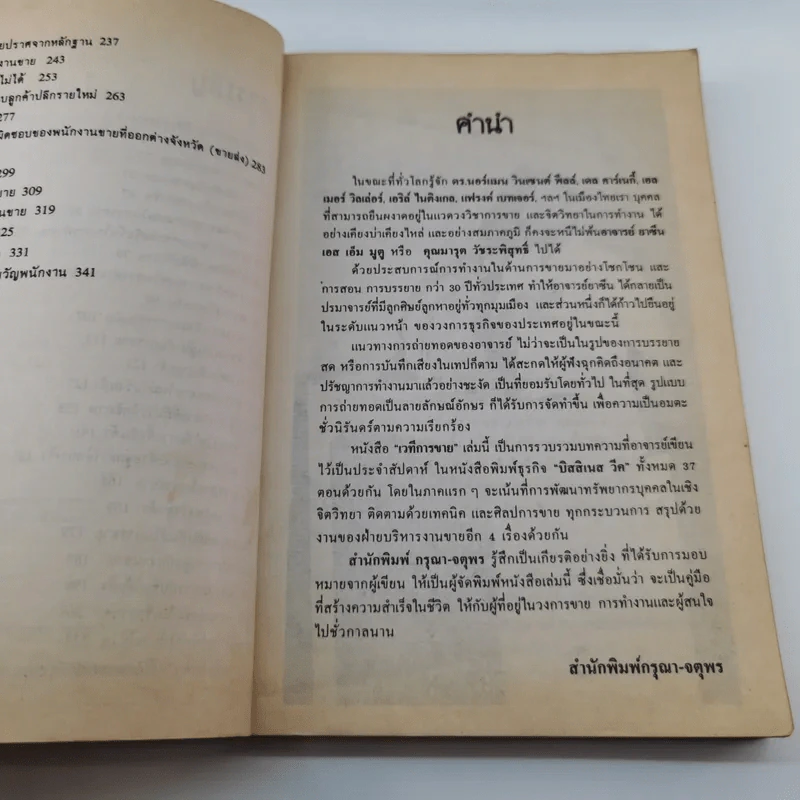 ยปราศจากหลักฐาน 237
งานขาย 243
ไม่ได้ 253
บลูกค้าปลีกรายใหม่ 263
277
ผิดชอบของพนักงานขายที่ออกต่างจังหวัด (ขายส่ง) 283
299
ขาย 309
นขาย 319
25
331
ขวัญพนักงาน 341
คำนำ
ในขณะที่ทั่วโลกรู้จัก ดร.นอร์แมน วินเซนต์ พีลส์, เดล คาร์เนกี้, เอล
เมอร์ วีลเล่อร์, เอริล ไนติงเกล, แฟรงค์ เบทเจอร์, ฯลฯ ในเมืองไทยเรา บุคคล
ที่สามารถยืนผงาดอยู่ในแวดวงวิชาการขาย และจิตวิทยาในการทำงาน ได้
อย่างเคียงบ่าเคียงไหล่ และอย่างสมภาคภูมิ ก็คงจะหนีไม่พ้นอาจารย์ ยาซีน
เอส เอ็ม มูตู หรือ คุณมารุต วัชระพิสุทธิ์ ไปได้
ด้วยประสบการณ์การทำงานในด้านการขายมาอย่างโชกโชน และ
การสอน การบรรยาย กว่า 30 ปีทั่วประเทศ ทำให้อาจารย์ยาซีน ได้กลายเป็น
ปรมาจารย์ที่มีลูกศิษย์ลูกหาอยู่ทั่วทุกมุมเมือง และส่วนหนึ่งก็ได้ก้าวไปยืนอยู่
ในระดับแนวหน้า ของวงการธุรกิจของประเทศอยู่ในขณะนี้
แนวทางการถ่ายทอดของอาจารย์ ไม่ว่าจะเป็นในรูปของการบรรยาย
สด หรือการบันทึกเสียงในเทปก็ตาม ได้สะกดให้ผู้ฟังฉุกคิดถึงอนาคต และ
ปรัชญาการทำงานมาแล้วอย่างชะงัด เป็นที่ยอมรับโดยทั่วไป ในที่สุด รูปแบบ
การถ่ายทอดเป็นลายลักษณ์อักษร ก็ได้รับการจัดทำขึ้น เพื่อความเป็นอมตะ
ชั่วนิรันดร์ตามความเรียกร้อง
หนังสือ "เวทีการขาย" เล่มนี้ เป็นการรวบรวมบทความที่อาจารย์เขียน
ไว้เป็นประจำสัปดาห์ ในหนังสือพิมพ์ธุรกิจ "บิสสิเนส วีค" ทั้งหมด 37
ตอนด้วยกัน โดยในภาคแรก ๆ จะเน้นที่การพัฒนาทรัพยากรบุคคลในเชิง
จิตวิทยา ติดตามด้วยเทคนิค และศิลปการขาย ทุกกระบวนการ สรุปด้วย
งานของฝ่ายบริหารงานขายอีก 4 เรื่องด้วยกัน
สำนักพิมพ์ กรุณา-จตุพร รู้สึกเป็นเกียรติอย่างยิ่ง ที่ได้รับการมอบ
หมายจากผู้เขียน ให้เป็นผู้จัดพิมพ์หนังสือเล่มนี้ ซึ่งเชื่อมั่นว่า จะเป็นคู่มือ
ที่สร้างความสำเร็จในชีวิต ให้กับผู้ที่อยู่ในวงการขาย การทำงานและผู้สนใจ
ไปชั่วกาลนาน
สำนักพิมพ์กรุณา-จตุพร